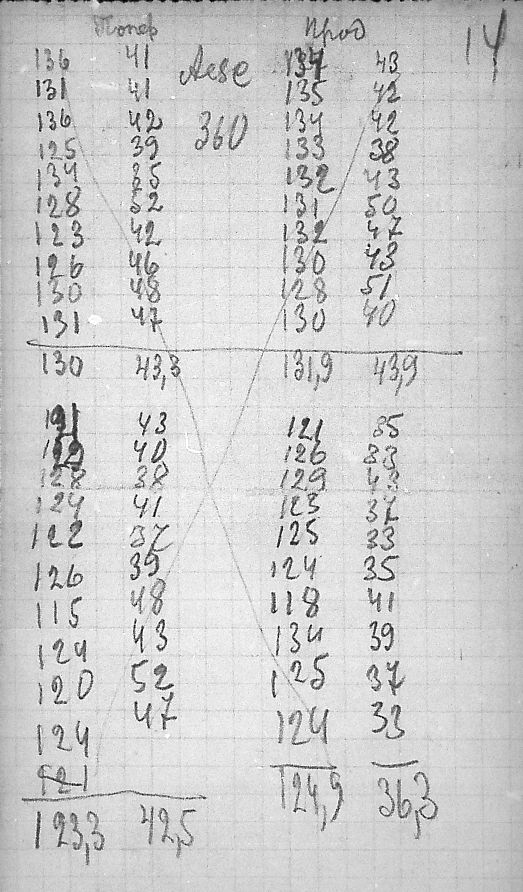 Попер Прод 14
136 41 Aese 137 43
131 41 135 42
136 42 360 134 42
125 39 133 38
134 35 132 43
128 52 131 50
123 42 132 47
126 46 130 43
130 48 128 51
131 47 130 40
130 43,3 131,9 43,9
43 121 35
40 126 33
128 38 129 43
124 41 123 37
122 37 125 33
126 39 124 35
115 48 118 41
124 43 134 39
120 52 125 37
124 47 124 33
121
123,3 42,5 124,9 36,3